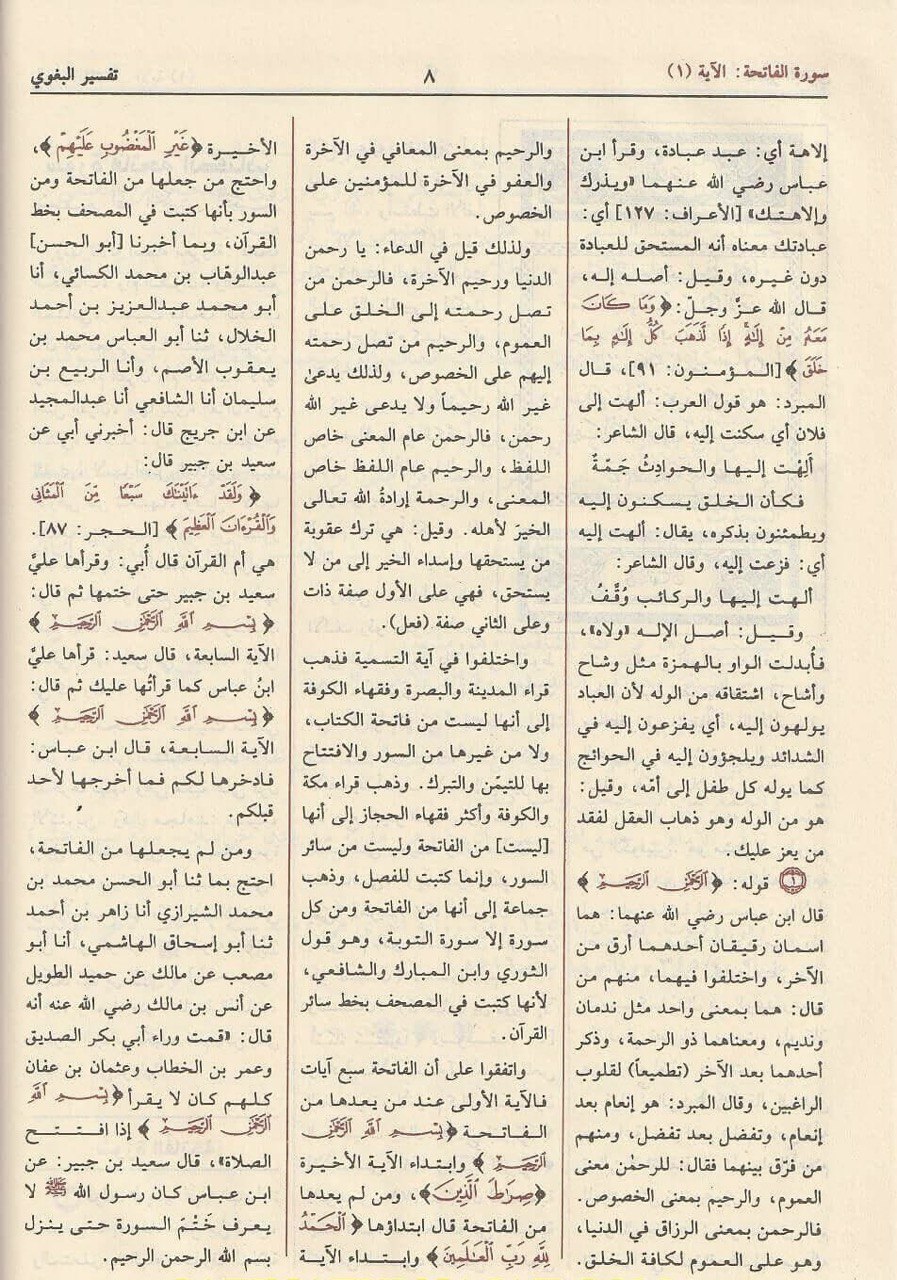 سورة الفاتحة: الآية (١)
٨
تفسير البغوي
إلاهة أي: عبد عبادة، وقرأ ابن
عباس رضي الله عنهما «ويذرك
وإلاهتك» [الأعراف: ١٢٧] أي:
عبادتك معناه أنه المستحق للعبادة
دون غيره، وقيل: أصله إله،
قال الله عزَّ وجلّ: ﴿وَمَا كَانَ
مَعَهُ مِنْ إِلَٰهٍ إِذًا لَّذَهَبَ كُلُّ إِلَٰهٍ بِمَا
خَلَقَ﴾ [المؤمنون: ٩١]، قال
المبرد: هو قول العرب: ألهت إلى
فلان أي سكنت إليه، قال الشاعر:
أَلِهْت إليها والحوادِثُ جَمّةٌ
فكأن الخلق يسكنون إليه
ويطمئنون بذكره، يقال: ألهت إليه
أي: فزعت إليه، وقال الشاعر:
ألهت إليها والركائب وُقَّفُ
وقيل: أصل الإله «ولاه»،
فأبدلت الواو بالهمزة مثل وشاح
وأشاح، اشتقاقه من الوله لأن العباد
يولهون إليه، أي يفزعون إليه في
الشدائد ويلجؤون إليه في الحوائج
كما يوله كل طفل إلى أمّه، وقيل:
هو من الوله وهو ذهاب العقل لفقد
من يعز عليك.
١ قوله: ﴿الرَّحْمَٰنِ الرَّحِيمِ﴾
قال ابن عباس رضي الله عنهما: هما
اسمان رقيقان أحدهما أرق من
الآخر، واختلفوا فيهما، منهم من
قال: هما بمعنى واحد مثل ندمان
ونديم، ومعناهما ذو الرحمة، وذكر
أحدهما بعد الآخر (تطميعاً) لقلوب
الراغبين، وقال المبرد: هو إنعام بعد
إنعام، وتفضل بعد تفضل، ومنهم
من فرّق بينهما فقال: للرحمٰن معنى
العموم، والرحيم بمعنى الخصوص.
فالرحمن بمعنى الرزاق في الدنيا،
وهو على العموم لكافة الخلق.
والرحيم بمعنى المعافي في الآخرة
والعفو في الآخرة للمؤمنين على
الخصوص.
ولذلك قيل في الدعاء: يا رحمن
الدنيا ورحيم الآخرة، فالرحمن من
تصل رحمته إلى الخلق على
العموم، والرحيم من تصل رحمته
إليهم على الخصوص، ولذلك يدعىٰ
غير الله رحيماً ولا يدعى غير الله
رحمن، فالرحمن عام المعنى خاص
اللفظ، والرحيم عام اللفظ خاص
المعنى، والرحمة إرادةُ الله تعالى
الخير لأهله. وقيل: هي ترك عقوبة
من يستحقها وإسداء الخير إلى من لا
يستحق، فهي على الأول صفة ذات
وعلى الثاني صفة (فعل).
واختلفوا في آية التسمية فذهب
قراء المدينة والبصرة وفقهاء الكوفة
إلى أنها ليست من فاتحة الكتاب،
ولا من غيرها من السور والافتتاح
بها للتيمّن والتبرك. وذهب قراء مكة
والكوفة وأكثر فقهاء الحجاز إلى أنها
[ليست] من الفاتحة وليست من سائر
السور، وإنما كتبت للفصل، وذهب
جماعة إلى أنها من الفاتحة ومن كل
سورة إلا سورة التوبة، وهو قول
الثوري وابن المبارك والشافعي،
لأنها كتبت في المصحف بخط سائر
القرآن.
واتفقوا على أن الفاتحة سبع آيات
فالآية الأولى عند من يعدها من
الفاتحة ﴿بِسْمِ اللَّهِ الرَّحْمَٰنِ
الرَّحِيمِ﴾ وابتداء الآية الأخيرة
﴿صِرَاطَ الَّذِينَ﴾، ومن لم يعدها
من الفاتحة قال ابتداؤها ﴿الْحَمْدُ
لِلَّهِ رَبِّ الْعَالَمِينَ﴾ وابتداء الآية
الأخيرة ﴿غَيْرِ الْمَغْضُوبِ عَلَيْهِمْ﴾،
واحتج من جعلها من الفاتحة ومن
السور بأنها كتبت في المصحف بخط
القرآن، وبما أخبرنا [أبو الحسن]
عبدالوهاب بن محمد الكسائي، أنا
أبو محمد عبدالعزيز بن أحمد
الخلال، ثنا أبو العباس محمد بن
يعقوب الأصم، وأنا الربيع بن
سليمان أنا الشافعي أنا عبدالمجيد
عن ابن جريج قال: أخبرني أبي عن
سعيد بن جبير قال:
﴿وَلَقَدْ ءَاتَيْنَٰكَ سَبْعًا مِّنَ الْمَثَانِي
وَالْقُرْءَانَ الْعَظِيمَ﴾ [الحجر: ٨٧].
هي أم القرآن قال أُبي: وقرأها عليَّ
سعيد بن جبير حتى ختمها ثم قال:
﴿بِسْمِ اللَّهِ الرَّحْمَٰنِ الرَّحِيمِ﴾
الآية السابعة، قال سعيد: قرأها عليَّ
ابنُ عباس كما قرأتُها عليك ثم قال:
﴿بِسْمِ اللَّهِ الرَّحْمَٰنِ الرَّحِيمِ﴾
الآية السابعة، قال ابن عباس:
فادخرها لكم فما أخرجها لأحد
قبلكم.
ومن لم يجعلها من الفاتحة،
احتج بما ثنا أبو الحسن محمد بن
محمد الشيرازي أنا زاهر بن أحمد
ثنا أبو إسحاق الهاشمي، أنا أبو
مصعب عن مالك عن حميد الطويل
عن أنس بن مالك رضي الله عنه أنه
قال: «قمت وراء أبي بكر الصديق
وعمر بن الخطاب وعثمان بن عفان
كلهم كان لا يقرأ ﴿بِسْمِ اللَّهِ
الرَّحْمَٰنِ الرَّحِيمِ﴾ إذا افتتح
الصلاة»، قال سعيد بن جبير: عن
ابن عباس كان رسول الله ﷺ لا
يعرف خَتْمَ السورة حتى ينزل
بسم الله الرحمن الرحيم.